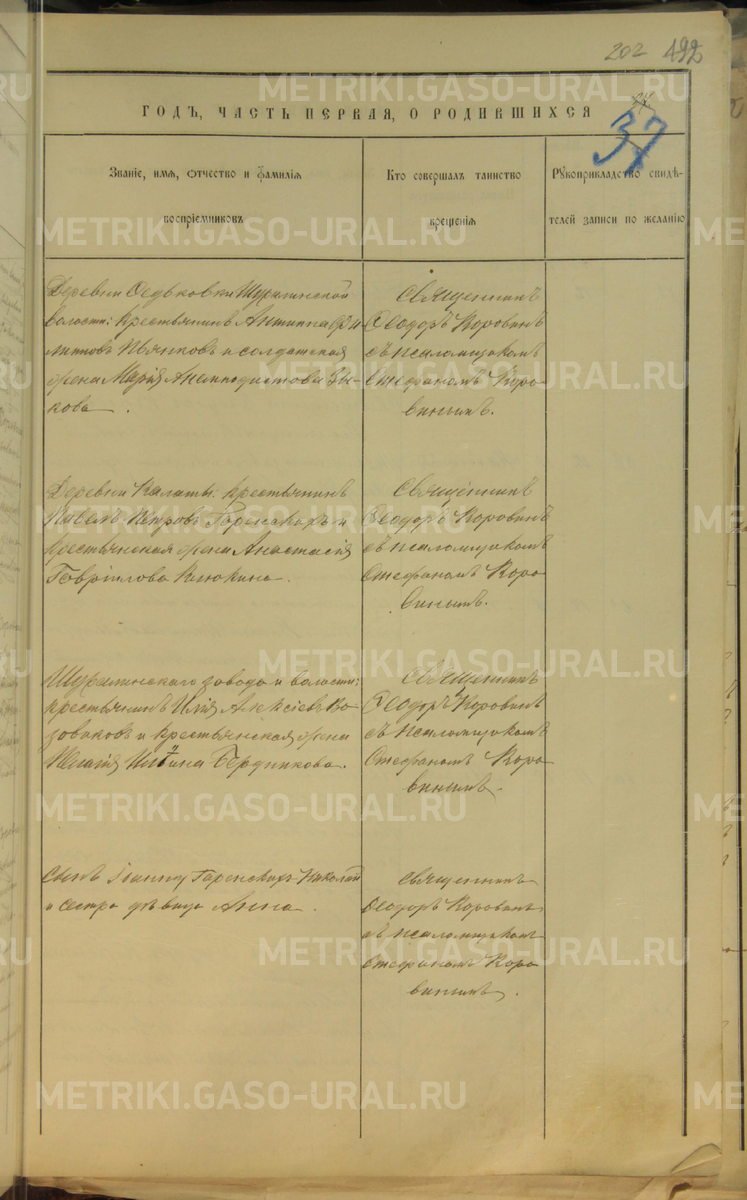 202 492
37
ГОДЪ, ЧАСТЬ ПЕРВАЯ, О РОДИВШИХСЯ
Званіе, имя, отчество и фамилія
воспріемниковъ
Кто совершалъ таинство
крещенія
Рукоприкладство свидѣ-
телей записи по желанію
Деревни Федьковки Шуралинской
волости: крестьянинъ Антипа
Пьянковъ и солдатская
жена Марія Анемподистова Зы-
кова.
Священникъ
Ѳеодоръ Коровинъ
съ псаломщикомъ
Стефаномъ Коро-
винымъ.
Деревни Калаты: крестьянинъ
Павелъ Петровъ Гаренскихъ и
крестьянская жена Анастасія
Гавріилова Клюкина.
Священникъ
Ѳеодоръ Коровинъ
съ псаломщикомъ
Стефаномъ Коро
винымъ.
Шуралинскаго завода и волости:
крестьянинъ Илія Алексіевъ Ко-
зовиковъ и крестьянская жена
Бердникова.
Священникъ
Ѳеодоръ Коровинъ
съ псаломщикомъ
Стефаномъ Коро
винымъ.
Сынъ Іоанну Гаренскихъ Николай
и сестра дѣвица Анна.
Священникъ
Ѳеодоръ Коровинъ
съ псаломщикомъ
Стефаномъ Коро
винымъ.
METRIKI.GASO-URAL.RU